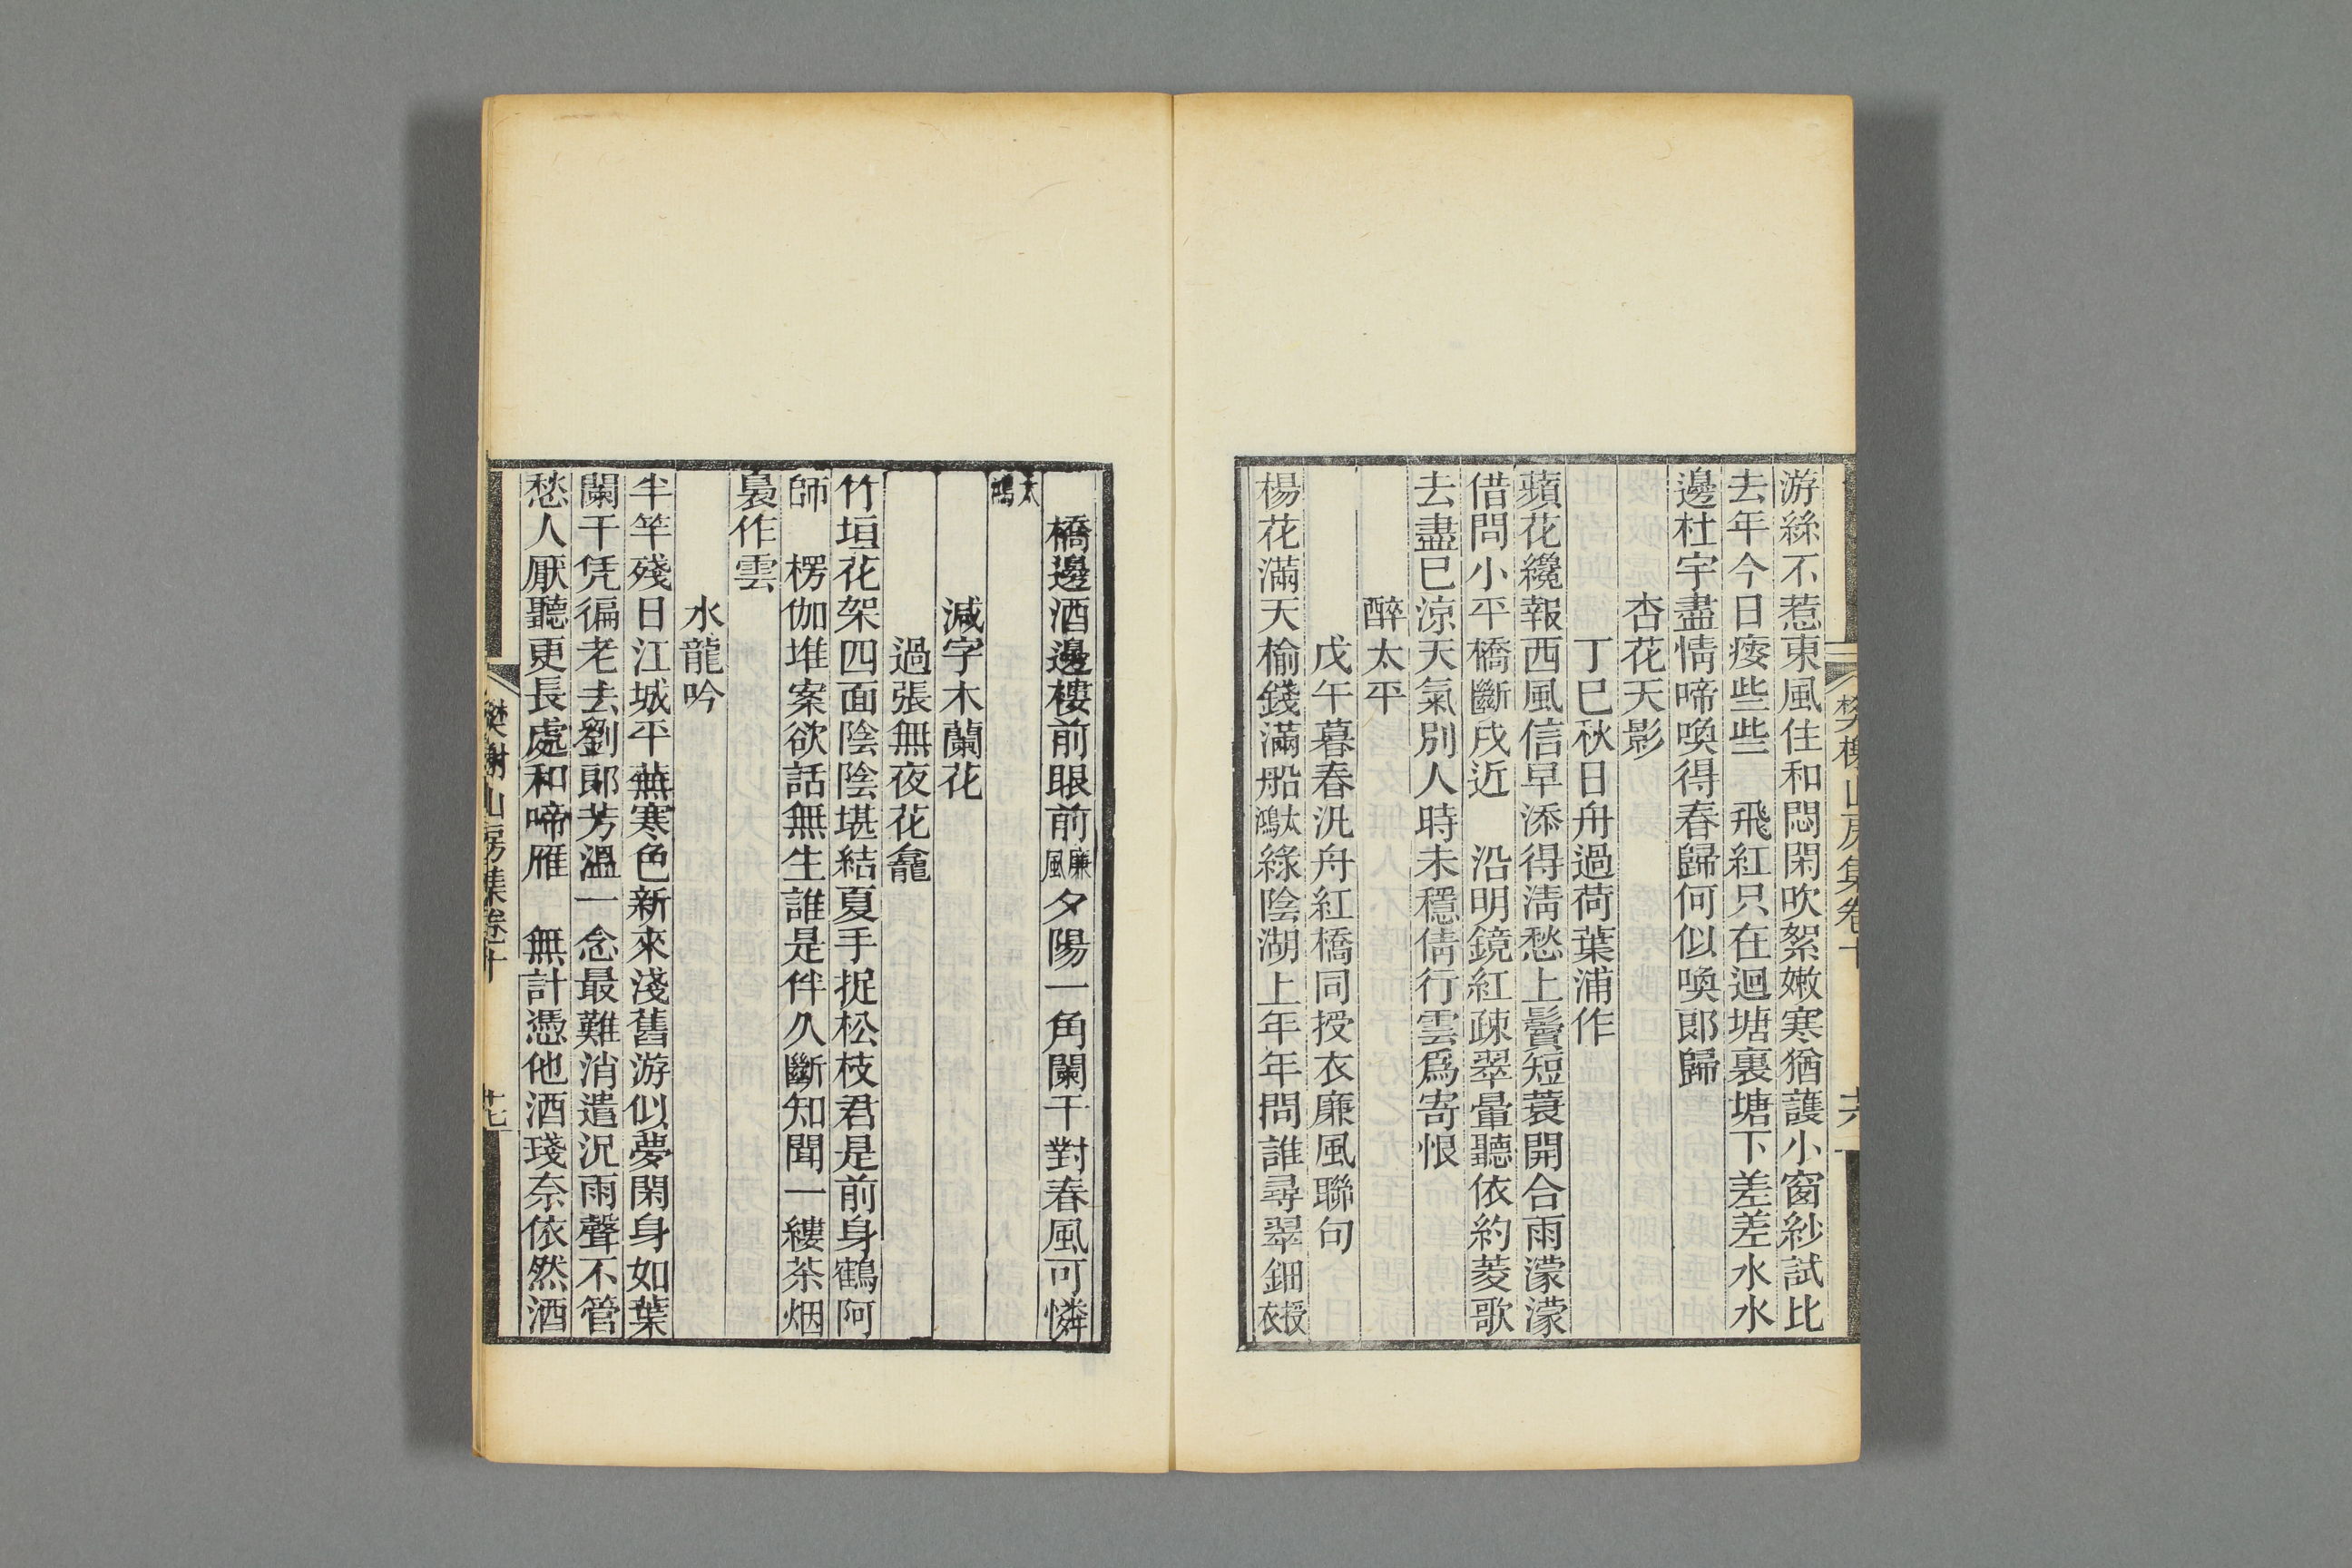 游絲不惹東風住和悶閑吹絮嫩寒猶護小窗紗試比
去年今日瘘些些　飛紅只在迴塘裏塘下差差水水
邊杜宇盡情啼喚得春歸何似喚郞歸
杏花天影
丁巳秋日舟過荷葉浦作
蘋花纔報西風信早添得淸愁上鬢短蓑開合雨濛濛
借問小平橋斷戍近　沿明鏡紅疎翠暈聽依約菱歌
去盡已涼天氣別人時未穩倩行雲爲寄恨
醉太平
戊午暮春汎舟紅橋同授衣廉風聯句
楊花滿天榆錢滿船太鴻綠陰湖上年年問誰尋翠鈿授衣
橋邊酒邊樓前眼前廉風夕陽一角闌干對春風可憐
太鴻
減字木蘭花
過張無夜花龕
竹垣花架四面陰陰堪結夏手捉松枝君是前身鶴阿
師　楞伽堆案欲話無生誰是伴久斷知聞一縷茶烟
裊作雲
水龍吟
半竿殘日江城平蕪寒色新來淺舊游似夢閑身如葉
闌干凭徧老去劉郞芳溫一念最難消遣況雨聲不管
愁人厭聽更長處和啼雁　無計憑他酒琖奈依然酒
樊榭山房集卷十